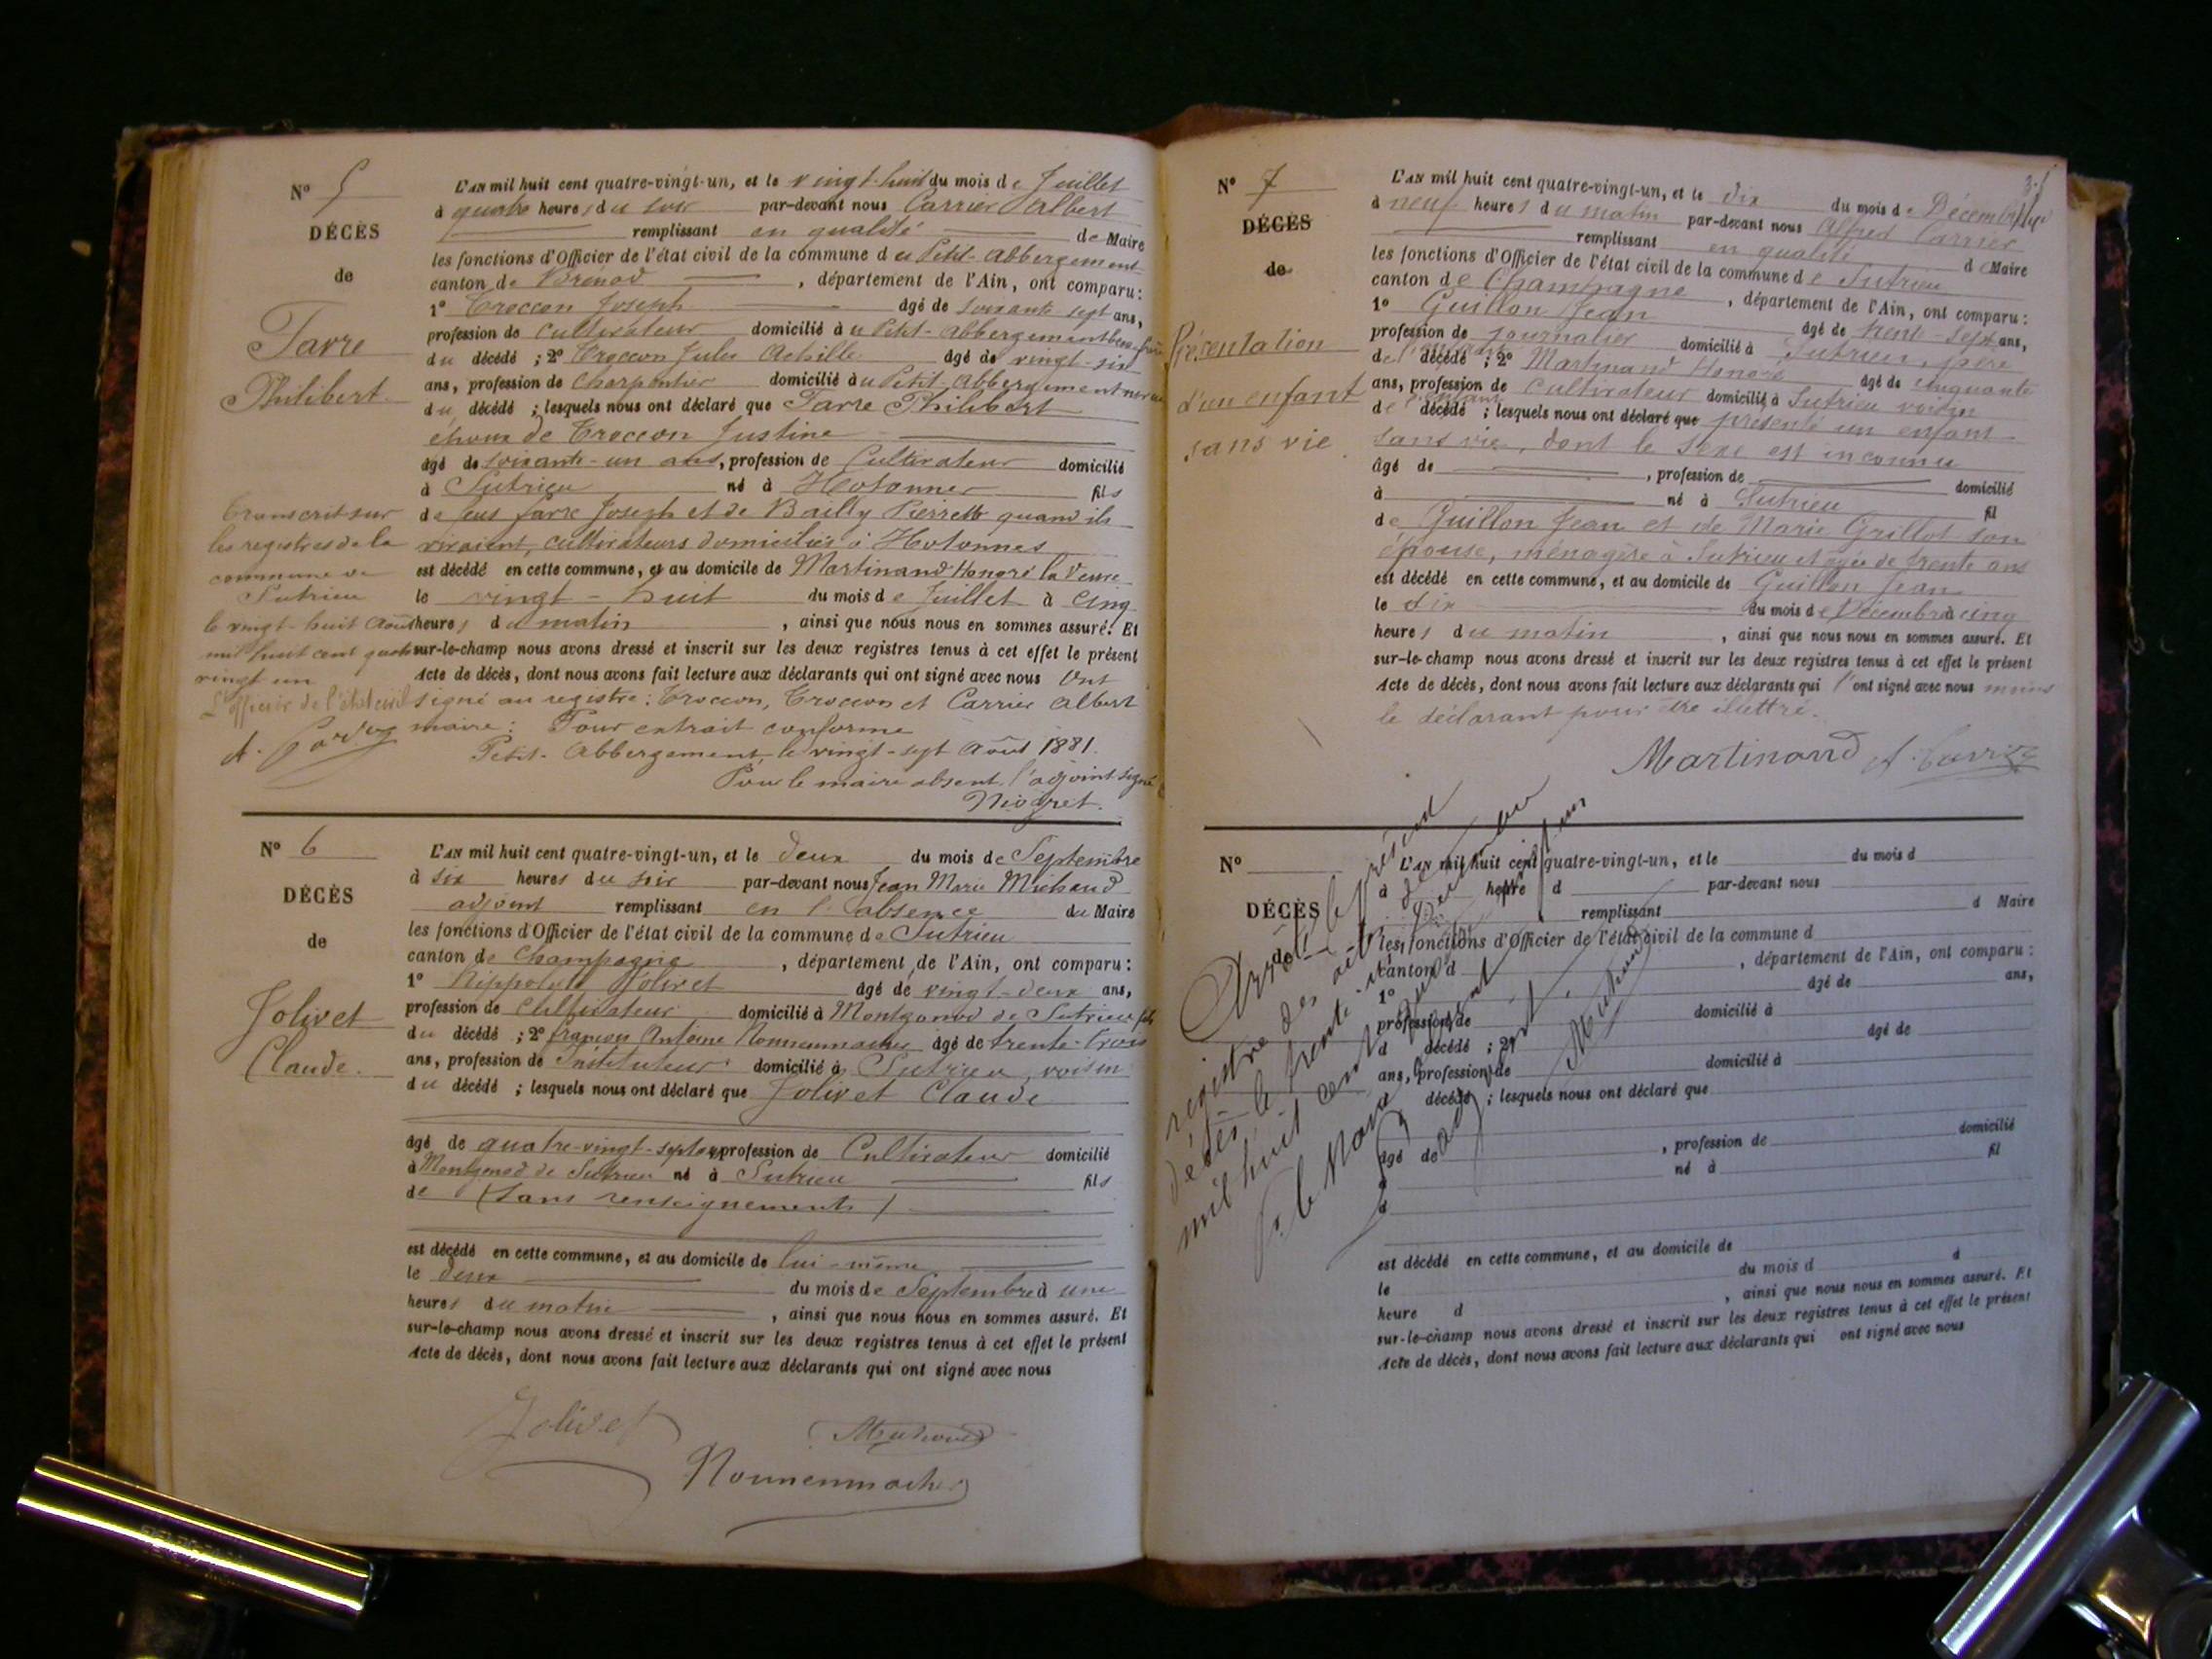 N° 5
DÉCÈS
de
Tarre
Philibert
L'AN mil huit cent quatre-vingt-un, et le vingt-huit du mois de Juillet
à quatre heures du soir par-devant nous Carrier Albert
remplissant en qualité de Maire
les fonctions d'Officier de l'état civil de la commune du Petit-Abbergement
canton de Brénod, département de l'Ain, ont comparu :
1° Troccon Joseph âgé de soixante sept ans,
profession de cultivateur domicilié à u Petit-Abbergement beau-frère
du décédé ; 2° Troccon Jules Achille âgé de vingt-six
ans, profession de Charpentier domicilié à u Petit-Abbergement neveu
du décédé ; lesquels nous ont déclaré que Tarre Philibert
époux de Troccon Justine
âgé de soixante-un ans, profession de Cultivateur domicilié
à Sutrieu né à Hotonnes fils
de feus Tarre Joseph et de Bailly Pierrette quand ils
vivaient, cultivateurs domiciliés à Hotonnes
est décédé en cette commune, et au domicile de Martinand Honoré la Veuve
le vingt-huit du mois de Juillet à cinq
heures du matin, ainsi que nous nous en sommes assuré. Et
sur-le-champ nous avons dressé et inscrit sur les deux registres tenus à cet effet le présent
Acte de décès, dont nous avons fait lecture aux déclarants qui ont signé avec nous Ont
signé au registre : Troccon, Troccon et Carrier Albert
maire : Pour extrait conforme
Petit-Abbergement, le vingt-sept Août 1881.
Pour le maire absent l'adjoint signé
Niogret.
Transcrit sur
les registres de la
commune de
Sutrieu
le vingt-huit Août
mil huit cent quatre
vingt un
L'officier de l'état civil
N° 6
DÉCÈS
de
Jolivet
Claude.
L'AN mil huit cent quatre-vingt-un, et le deux du mois de Septembre
à six heures du soir par-devant nous Jean Marie Michaud
adjoint remplissant en l'absence du Maire
les fonctions d'Officier de l'état civil de la commune de Sutrieu
canton de Champagne, département de l'Ain, ont comparu :
1° Hippolyte Jolivet âgé de vingt-deux ans,
profession de cultivateur domicilié à Montgonod de Sutrieu fils
du décédé ; 2° François Antoine Nonnenmacher âgé de trente-trois
ans, profession de Instituteur domicilié à Sutrieu, voisin
du décédé ; lesquels nous ont déclaré que Jolivet Claude
âgé de quatre-vingt-sept ans, profession de Cultivateur domicilié
à Montgonod de Sutrieu né à Sutrieu fils
de (sans renseignements)
est décédé en cette commune, et au domicile de lui-même
le deux du mois de Septembre à une
heures du matin, ainsi que nous nous en sommes assuré. Et
sur-le-champ nous avons dressé et inscrit sur les deux registres tenus à cet effet le présent
Acte de décès, dont nous avons fait lecture aux déclarants qui ont signé avec nous
Jolivet
Michaud
Nonnenmacher
N° 7
DÉCÈS
de
Présentation
d'un enfant
sans vie.
L'AN mil huit cent quatre-vingt-un, et le dix du mois de Décembre
à neuf heures du matin par-devant nous Alfred Carrier
remplissant en qualité de Maire
les fonctions d'Officier de l'état civil de la commune de Sutrieu
canton de Champagne, département de l'Ain, ont comparu :
1° Guillon Jean âgé de trente-sept ans,
profession de journalier domicilié à Sutrieu, père
de l'enfant décédé ; 2° Martinand Honoré âgé de cinquante
ans, profession de cultivateur domicilié à Sutrieu voisin
de l'enfant décédé ; lesquels nous ont déclaré que présenté un enfant
sans vie, dont le sexe est inconnu
âgé de, profession de domicilié
à né à Sutrieu fil
de Guillon Jean et de Marie Grillot son
épouse, ménagère à Sutrieu et âgée de trente ans
est décédé en cette commune, et au domicile de Guillon Jean
le dix du mois de Décembre à cinq
heures du matin, ainsi que nous nous en sommes assuré. Et
sur-le-champ nous avons dressé et inscrit sur les deux registres tenus à cet effet le présent
Acte de décès, dont nous avons fait lecture aux déclarants qui l'ont signé avec nous moins
le déclarant pour être illettré.
Martinand A. Carrier
N°
DÉCÈS
de
L'AN mil huit cent quatre-vingt-un, et le du mois d
à heure d par-devant nous
remplissant d Maire
les fonctions d'Officier de l'état civil de la commune d
canton d, département de l'Ain, ont comparu :
1° âgé de ans,
profession de domicilié à
d décédé ; 2° âgé de
ans, profession de domicilié à
décédé ; lesquels nous ont déclaré que
âgé de, profession de domicilié
à né à fil
d
est décédé en cette commune, et au domicile de
le du mois d d
heure d, ainsi que nous nous en sommes assuré. Et
sur-le-champ nous avons dressé et inscrit sur les deux registres tenus à cet effet le présent
Acte de décès, dont nous avons fait lecture aux déclarants qui ont signé avec nous
Arrêté le présent
registre des actes de
décès le trente un Décembre
mil huit cent quatre vingt un
P. le Maire absent
Michaud